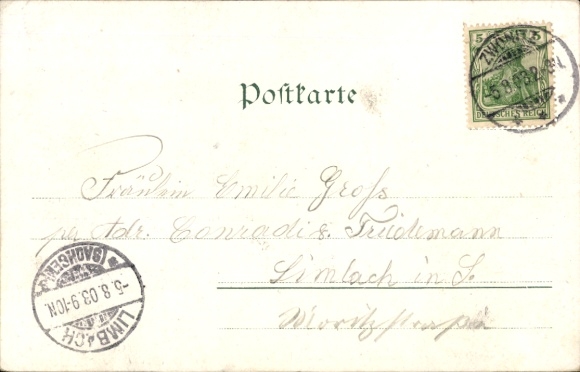 5 5
ZWÖNITZ
5.8.03.
DEUTSCHES REICH
Postkarte
Fräulein Emilie Groß
pr. Adr. Conradi & Friedemann
Limbach in S.
Moritzstraße
LIMBACH
-5.8.03.9-10N.
(SACHSEN)